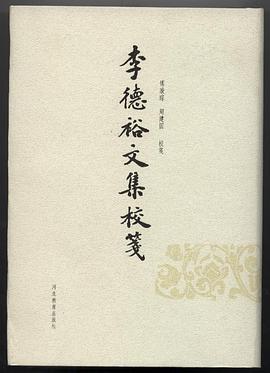 李德裕文集校箋
傅璇琮 周建國 校箋
河北教育出版社